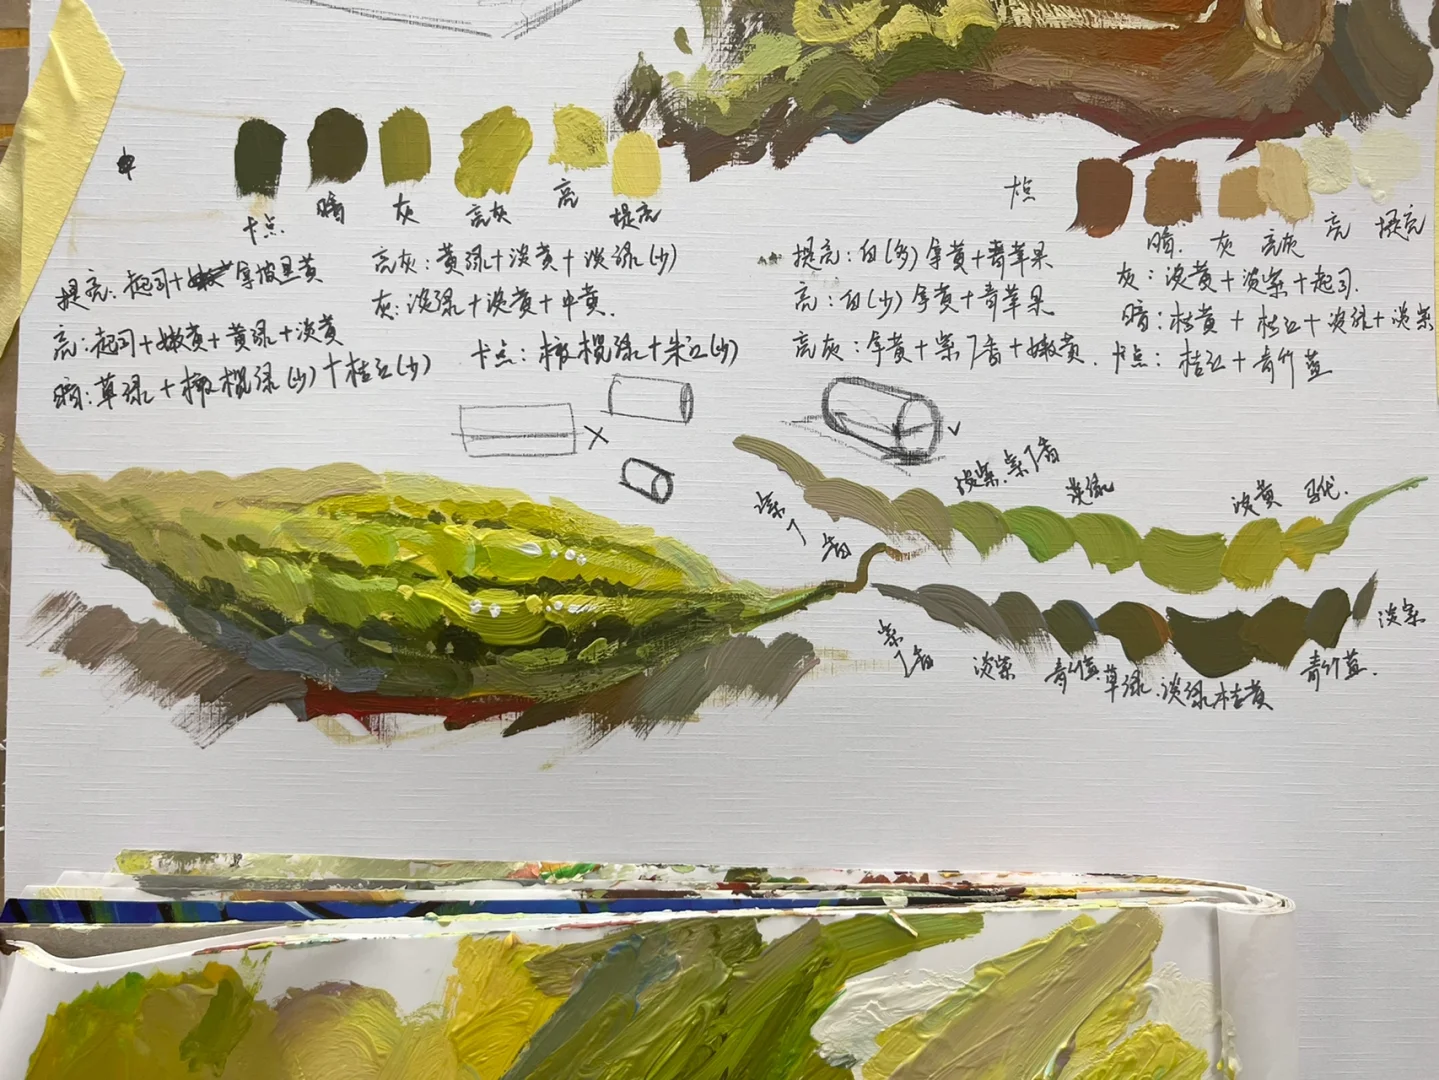 卡点
暗
灰
亮灰
亮
提亮
提亮：起司+拿坡里黄
亮：起司+嫩黄+黄绿+淡黄
暗：草绿+橄榄绿(少)+桔红(少)
亮灰：黄绿+淡黄+淡绿(少)
灰：淡绿+淡黄+中黄.
卡点：橄榄绿+朱红(少)
卡点
暗.
灰
亮灰
亮
提亮
提亮：白(多)拿黄+青苹果
亮：白(少)拿黄+青苹果
亮灰：拿黄+紫丁香+嫩黄.
灰：淡黄+淡紫+起司.
暗：桔黄+桔红+淡绿+淡紫
卡点：桔红+青竹蓝
紫丁香
淡紫.紫丁香
淡绿
淡黄
紫丁香
淡紫
青竹蓝
草绿.
淡绿
桔黄
青竹蓝.
淡紫